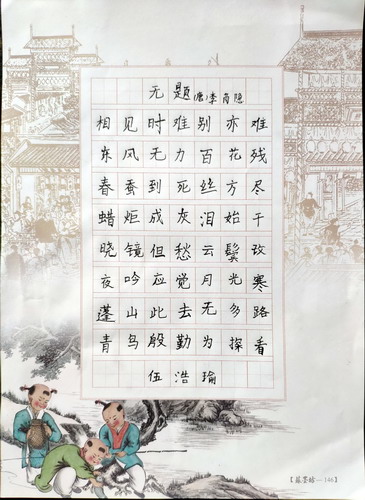 无题(唐)李商隐
相见时难别亦难
东风无力百花残
春蚕到死丝方尽
蜡炬成灰泪始干
晓镜但愁云鬓改
夜吟应觉月光寒
蓬山此去无多路
青鸟殷勤为探看
伍浩瑜